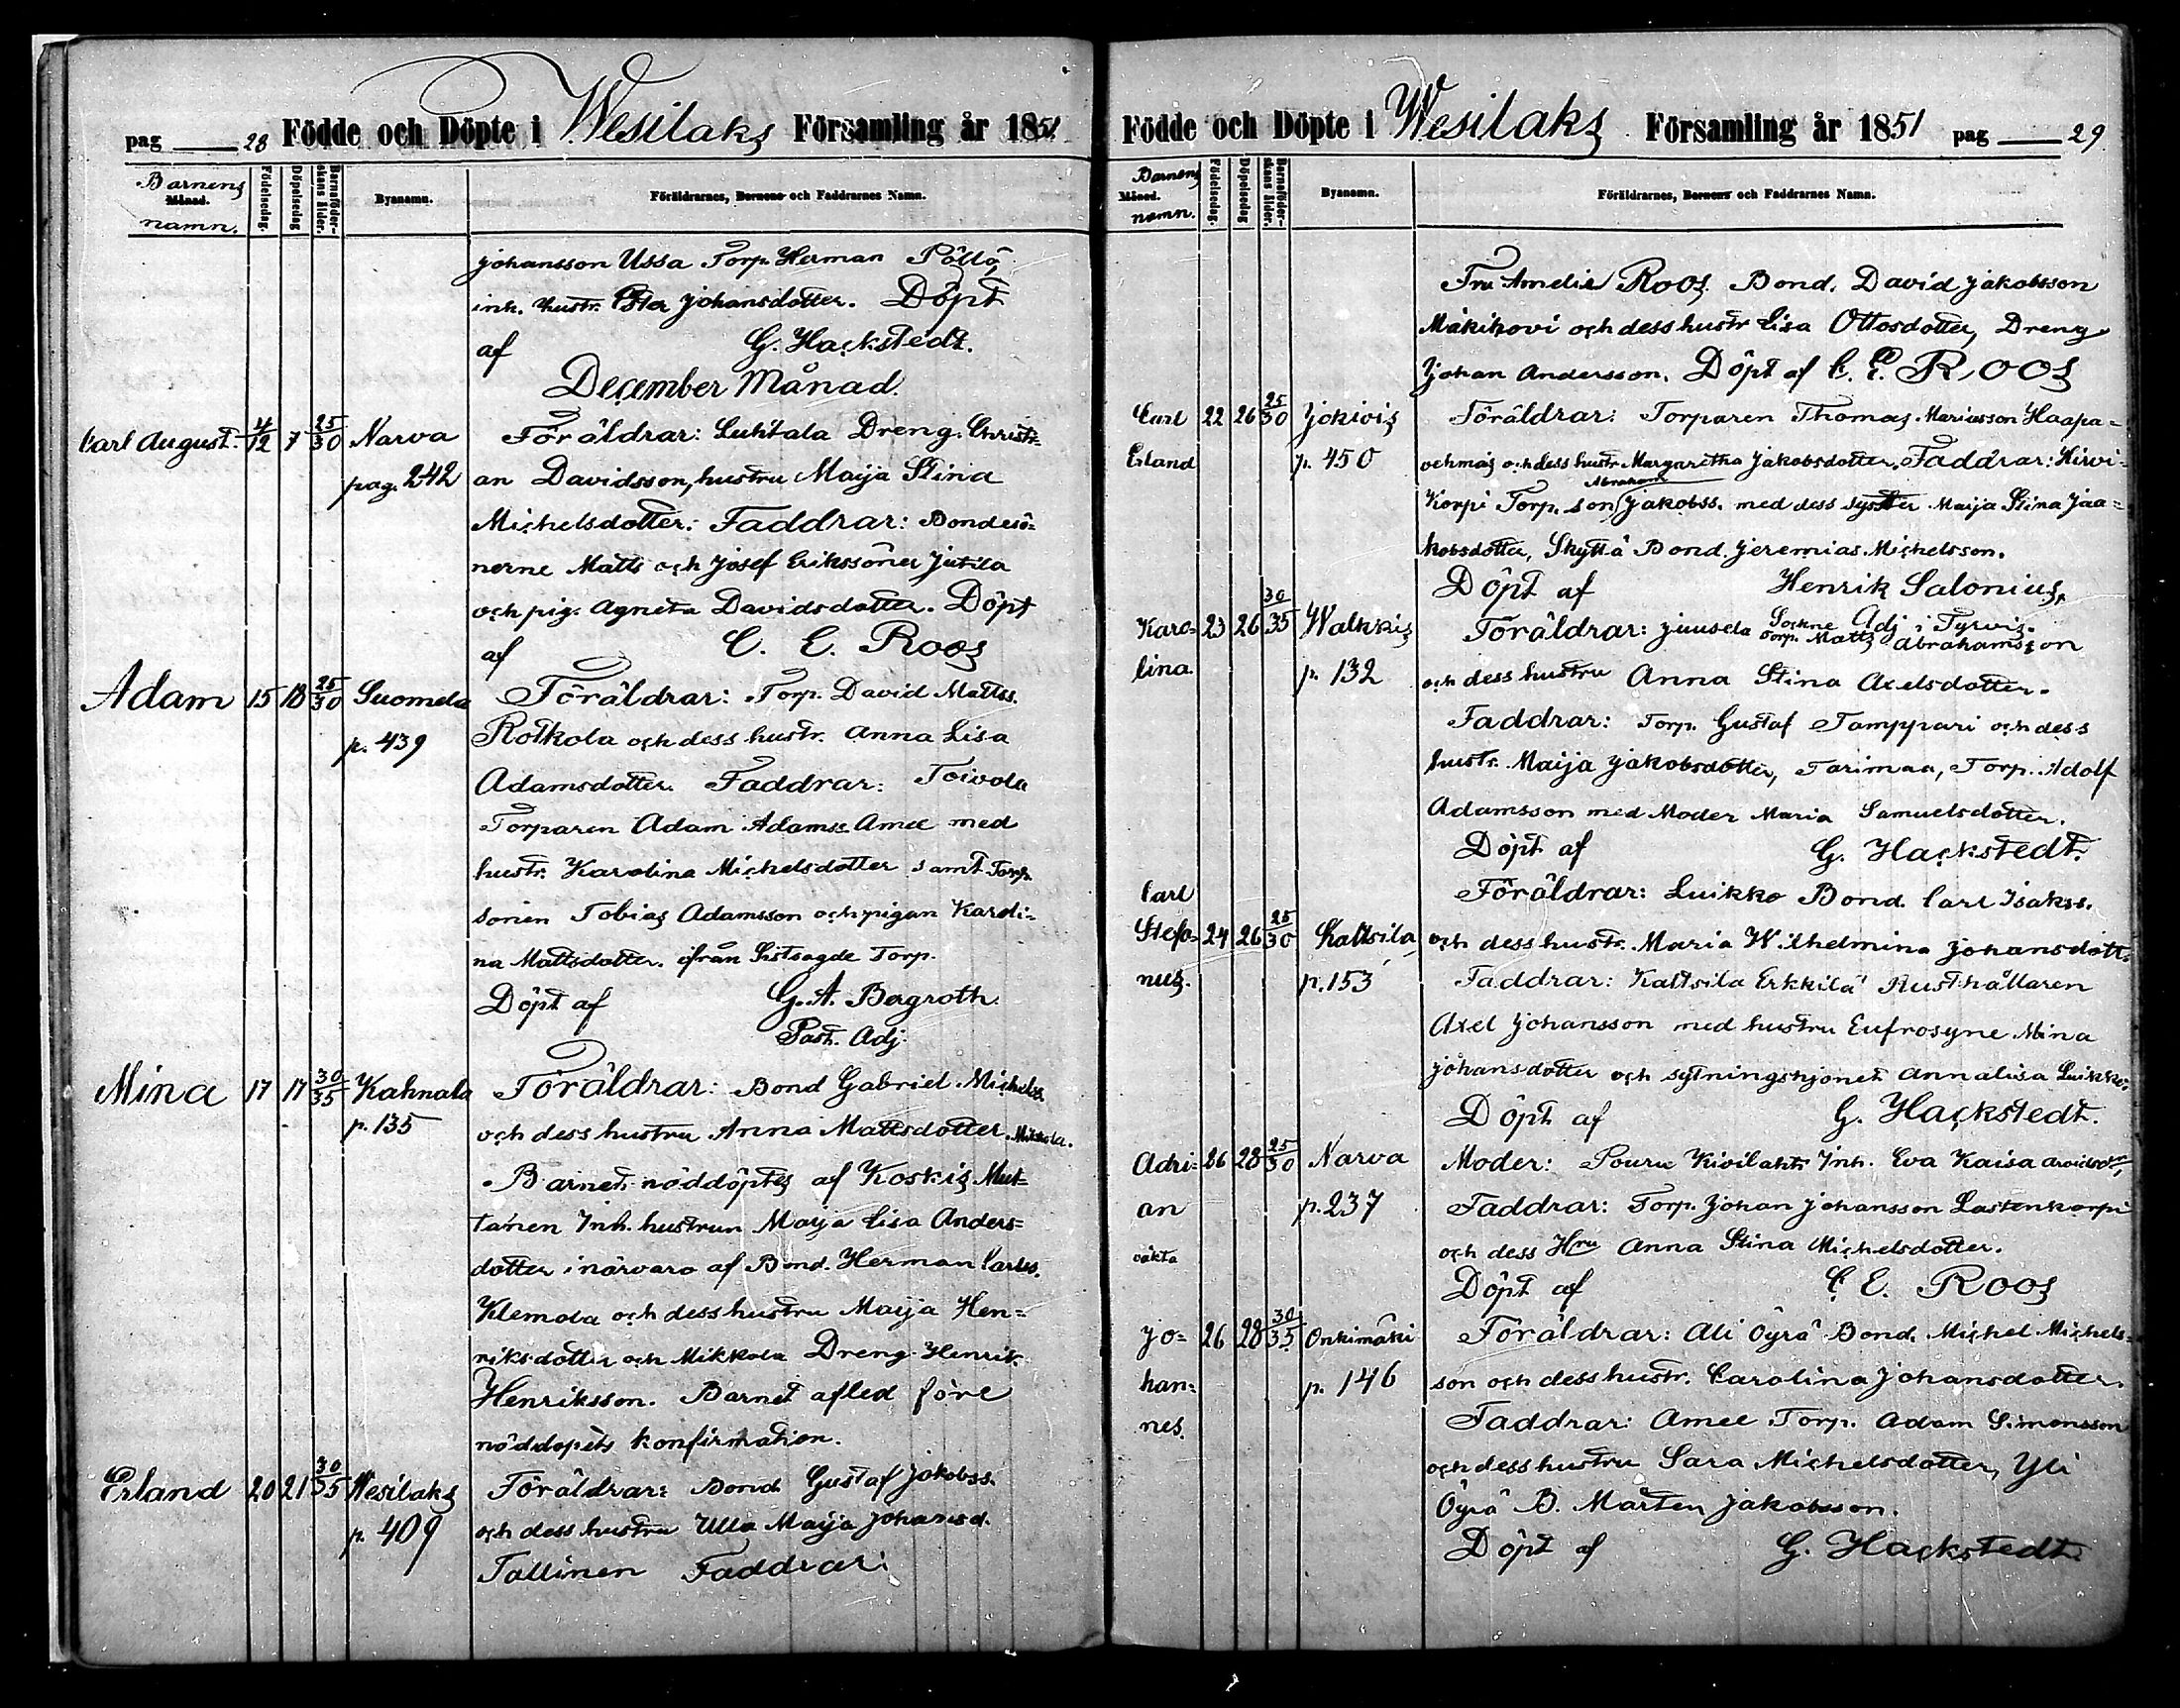 pag 28 Födde och Döpte i Wesilaks Församling år 1851
Barnens
Månad.
namn.
Födelsedag.
Döpelsedag
Barnaföder-
skans ålder.
Byanamn.
Föräldrarnes, Barnens och Faddrarnes Namn.
Johansson Ussa Torp. Herman Pöllö,
inh. hustr. Johansdotter. Döpt
af G. Hackstedt.
December Månad.
Carl August. 4/12 7 25/30 Narva Föräldrar: Luhtala Dreng. Christi-
pag. 242 an Davidsson, hustru Maija Stina
Michelsdotter: Faddrar: Bondesö-
nerne Matts och Josef Erikssöner Jutila
och pig. Agneta Davidsdotter. Döpt
af C. E. Roos
Adam 15 18 25/30 Suomela Föräldrar: Torp. David Matss.
p. 439 Rotkola och dess hustr. Anna Lisa
Adamsdotter. Faddrar: Toivola
Torparen Adam Adamss. Amee med
hustr. Karolina Michelsdotter samt Torp.
sonen Tobias Adamsson och pigan Karoli-
na Mattsdotter. ifrån Sistsagde Torp.
Döpt af G. A. Bergroth
Past. Adj.
Mina 17 17 30/35 Kahnala Föräldrar: Bond Gabriel Michelss.
p. 135 och dess hustru Anna Mattsdotter. Mikkola.
Barnet nöddöptes af Koskis Mut-
tanen Inh. hustrun Maija Lisa Anders-
dotter i närvaro af Bond. Herman Carlss.
Klemola och dess hustru Maija Hen-
riksdotter och Mikkola Dreng Henrik
Henriksson. Barnet afled före
nöddopets konfirmation.
Erland 20 21 30/35 Wesilaks Föräldrar: Bond Gustaf Jakobss.
p. 409 och dess hustru Ulla Maija Johansd.
Tallinen Faddrar:
Födde och Döpte i Wesilaks Församling år 1851 pag 29
Barnens
Månad.
namn.
Födelsedag.
Döpelsedag
Barnaföder-
skans ålder.
Byanamn.
Föräldrarnes, Barnens och Faddrarnes Namn.
Fru Amelie Roos. Bond. David Jakobsson
Mäkihovi och dess hustr Lisa Ottosdotter, Dreng
Johan Andersson. Döpt af C. E. Roos
Carl 22 26 25/30 Jokivis Föräldrar: Torparen Thomas Mariasson Haapa-
Erland p. 450 och dess hustr. Margaretha Jakobsdotter. Faddrar: Hirvi-
Abraham
Korpi Torp. son Jakobss. med dess syster Maija Stina Jaa-
kobsdotter, Skyttä Bond. Jeremias Michelsson.
Döpt af Henrik Salonius,
Sockne Adj i Tyrvis.
Karo- 23 26 30/35 Walkkis Föräldrar: Juusela Torp. Matts Abrahamsson
lina p. 132 och dess hustru Anna Stina Axelsdotter.
Faddrar: Torp. Gustaf Tamppari och dess
hustr. Maija Jakobsdotter, Tarimaa, Torp. Adolf
Adamsson med Moder Maria Samuelsdotter.
Döpt af G. Hackstedt.
Carl Föräldrar: Luikko Bond. Carl Isakss.
Stefa- 24 26 25/30 Kaltsila och dess hustr. Maria Wilhelmina Johansdott.
nus. p. 153 Faddrar: Kaltsila Erkkilä Rusthållaren
Axel Johansson med hustru Eufrosyne Mina
Johansdotter och sytningshjonet Annalisa Luikko.
Döpt af G. Hackstedt.
Adri- 26 28 25/30 Narva Moder: Pouru Kivilahti Inh. Eva Kaisa
an p. 237 Faddrar: Torp. Johan Johansson Lastenkorpi
oäkta och dess Hru Anna Stina Michelsdotter.
Döpt af C E. Roos
Jo- 26 28 30/35 Onkimäki Föräldrar: Ali Öyrä Bond. Michel Michels-
han- p. 146 son och dess hustr. Carolina Johansdotter.
nes. Faddrar: Amee Torp. Adam Simonsson
och dess hustru Sara Michelsdotter, Yli
Öyrä B. Mårten Jakobsson.
Döpt af G. Hackstedt.